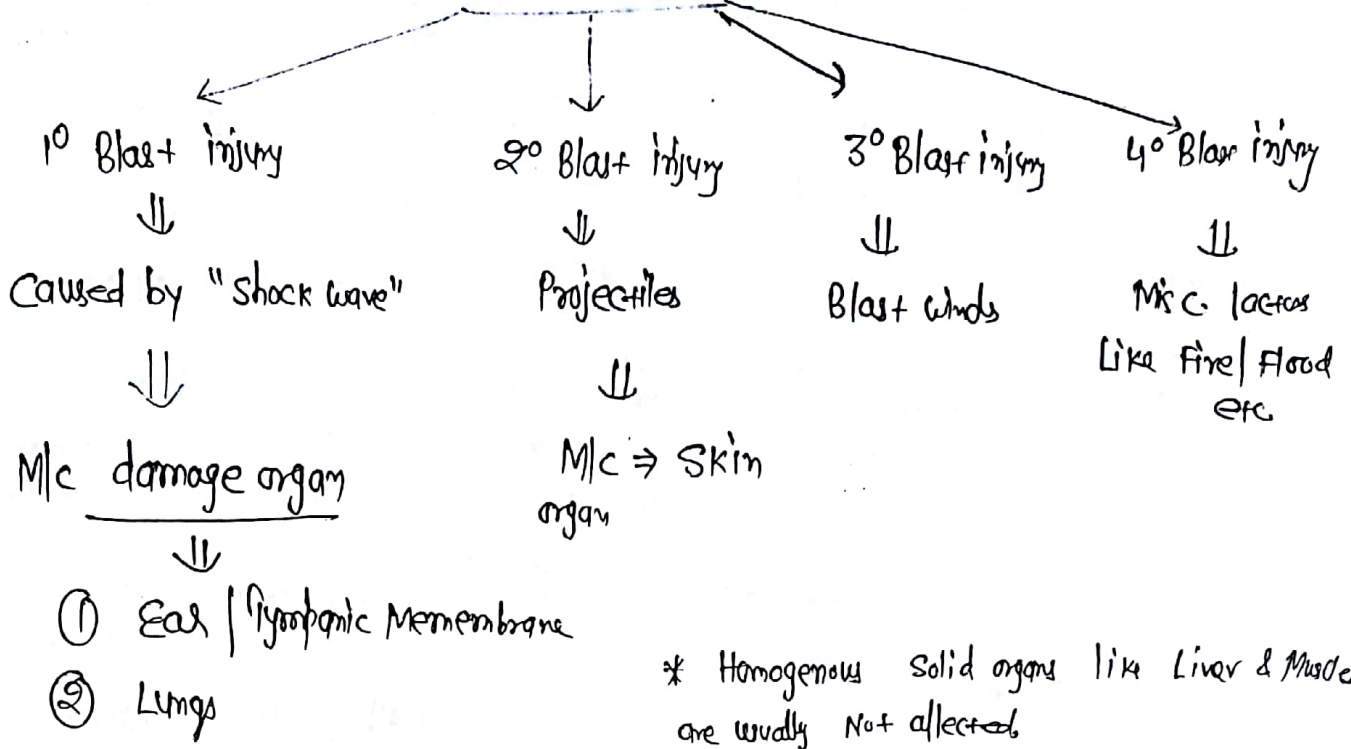 1° Blast injury
⇓
Caused by "Shock wave"
⇓
M/c damage organ
⇓
① Ear / Tympanic Memembrane
② Lungs
2° Blast injury
⇓
Projectiles
⇓
M/c ⇒ Skin
organ
3° Blast injury
⇓
Blast winds
4° Blast injury
⇓
Misc. factors
Like Fire/ Flood
etc.
* Homogenous Solid organs like Liver & Muscle
are usually Not affected